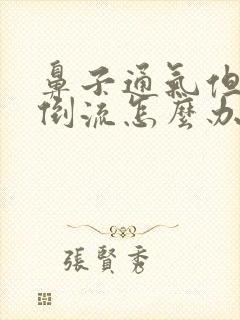 鼻子通氣但
倒流怎麼办
張賢秀